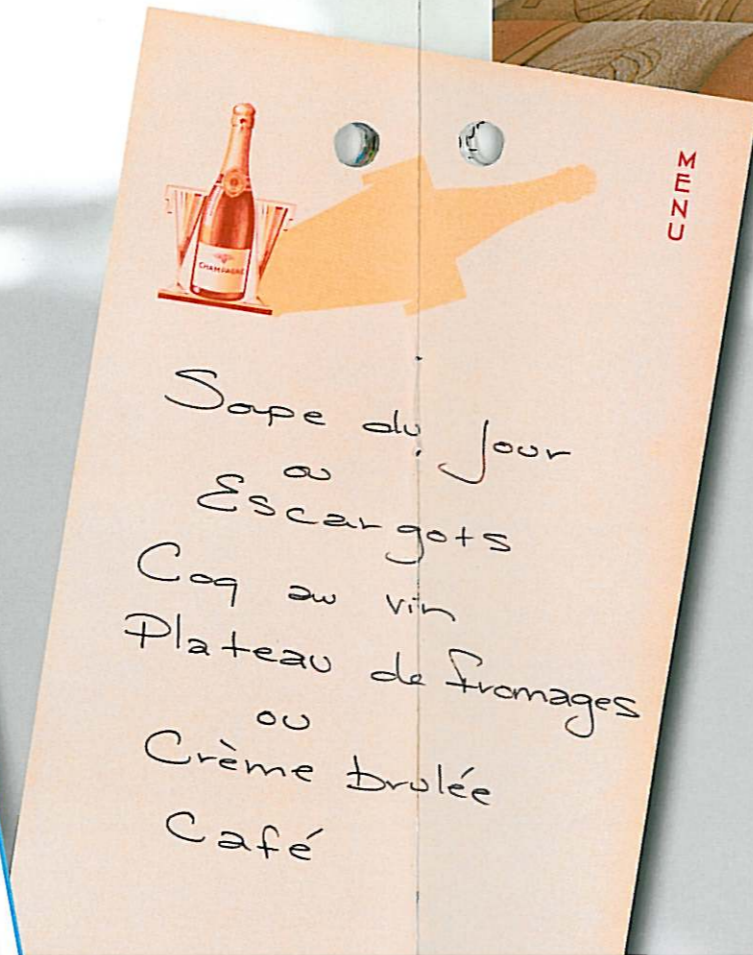 CHAMPAGNE
MENU
Soupe du jour
ou
Escargots
Coq au vin
Plateau de fromages
ou
Crème brulée
Café